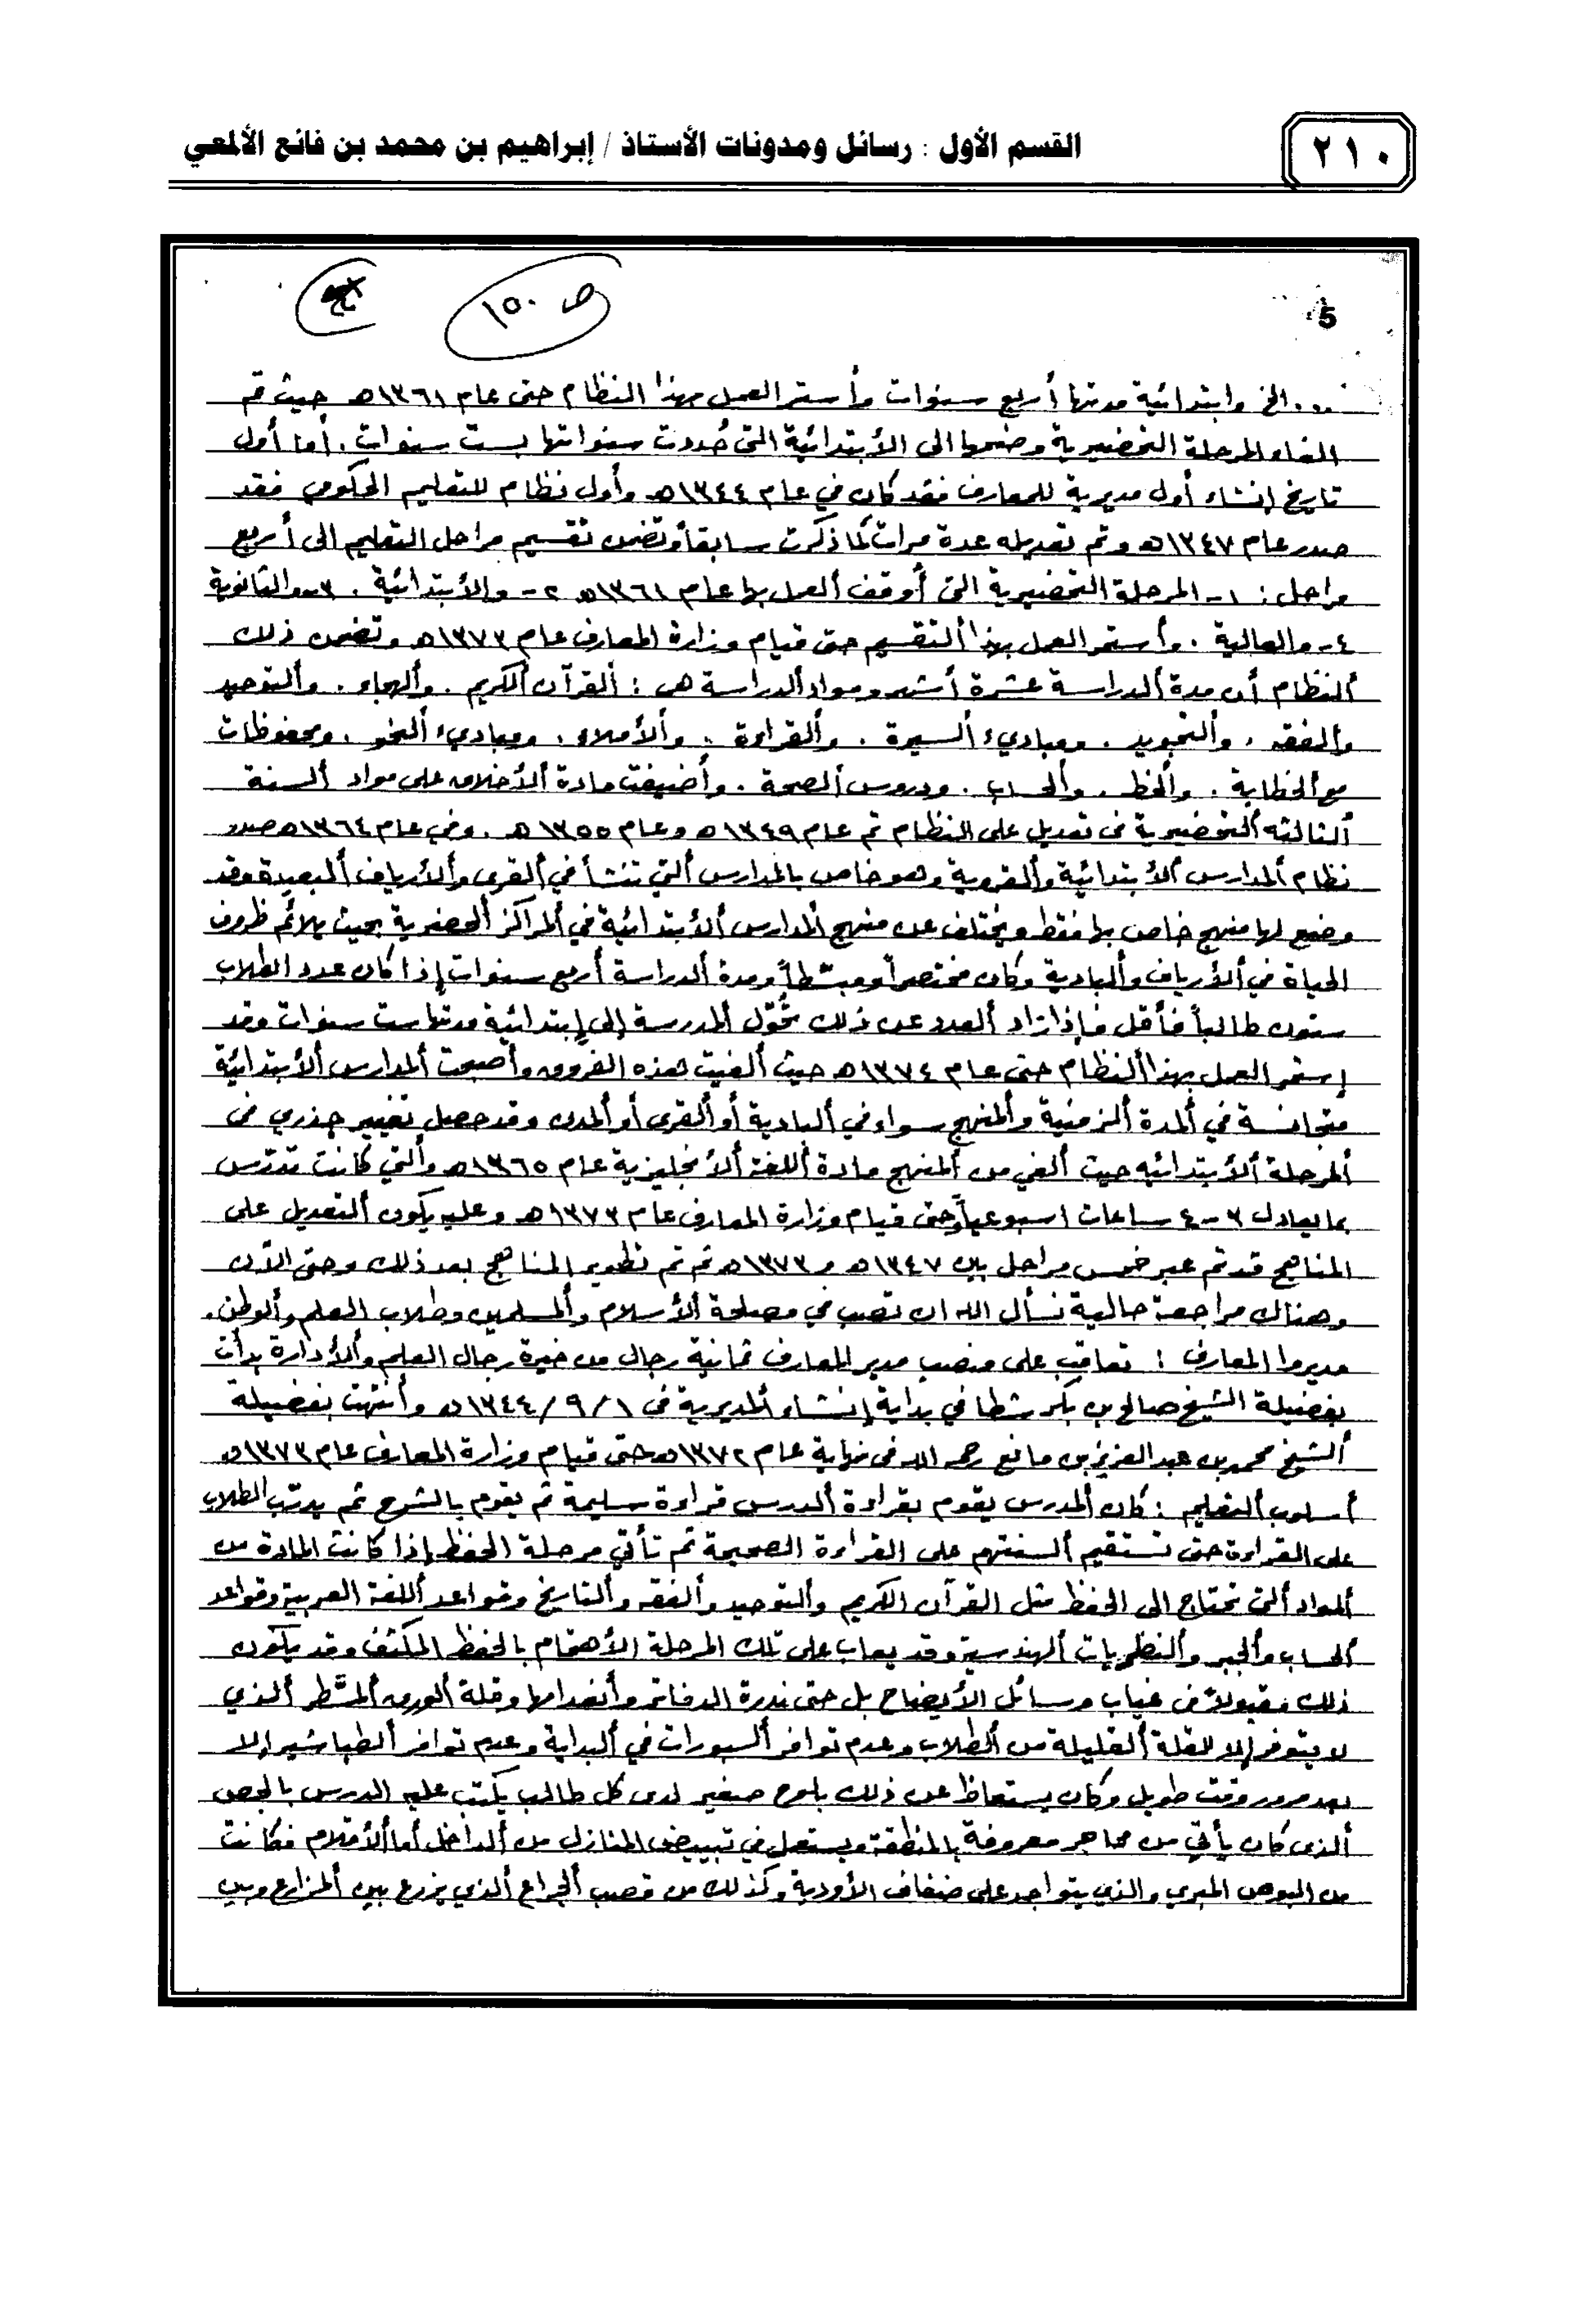 ٢١٠
القسم الأول : رسائل ومدونات الأستاذ / إبراهيم بن محمد بن فائع الألمعي
5
ص ١٥٠
... الخ وابتدائية مدتها أربع سنوات وأستمر العمل بهذا النظام حتى عام ١٣٦١هـ حيث تم
الغاء المرحلة التحضيرية وضمها الى الأبتدائية التى حُددت سنواتها بست سنوات . أما أول
تاريخ إنشاء أول مديرية للمعارف فقد كان في عام ١٣٤٤هـ وأول نظام للتعليم الحكومي فقد
صدر عام ١٣٤٧هـ وتم تعديله عدة مرات كما ذكرت سابقاً وتضمن تقسيم مراحل التعليم الى أربع
مراحل : ١- المرحلة التحضيرية التى أوقف ألعمل بها عام ١٣٦١هـ ٢- والأبتدائية . ٣- والثانوية
٤- والعالية . وأستمر العمل بهذا ألتقسيم حتى قيام وزارة المعارف عام ١٣٧٣هـ وتضمن ذلك
ألنظام أن مدة ألدراسة عشرة أشهر ومواد ألدراسة هى : ألقرآن ألكريم . وألهجاء . وألتوحيد
وألفقه . وألتجويد . ومباديء ألسيرة . وألقراءة . وألأملاء . ومباديء ألنحو . ومحفوظات
مع ألخطابة . وألخط . وألحساب . ودروس ألصحة . وأضيفت مادة ألأخلاق على مواد ألسنة
ألثالثه ألتحضيرية فى تعديل على النظام تم عام ١٣٤٩هـ وعام ١٣٥٥هـ . وفي عام ١٣٦٤هـ صدر
نظام ألمدارس ألأبتدائية وألقروية وهو خاص بالمدارس ألتي تنشأ في ألقرى وألأرياف ألبعيدة وقد
وضع لها منهج خاص بها فقط ويختلف عن منهج ألمدارس ألأبتدائية في ألمراكز ألحضرية بحيث يلائم ظروف
الحياة في ألأرياف وألبادية وكان مختصراً ومبسّطاً ومدة ألدراسة أربع سنوات إذا كان عدد الطلاب
ستون طالباً فأقل فإذا زاد ألعدد عن ذلك تحُوّل ألمدرسة إلى إبتدائية مدتها ست سنوات وقد
إستمر العمل بهذا ألنظام حتى عام ١٣٧٤هـ حيث ألغيت هذه الفروق وأصبحت ألمدارس ألأبتدائية
متجانسة في ألمدة ألزمنية وألمنهج سواء في ألبادية أو ألقرى أو ألمدن وقد حصل تغيير جذري فى
ألمرحلة ألأبتدائيه حيث ألغي من ألمنهج مادة أللغة ألأنجليزية عام ١٣٦٥هـ وألتي كانت تدرّس
بما يعادل ٣-٤ ساعات اسبوعياً وحتى قيام وزارة المعارف عام ١٣٧٣هـ وعليه يكون ألتعديل على
المناهج قد تم عبر خمس مراحل بين ١٣٤٧هـ و ١٣٧٣هـ ثم تم تطوير المناهج بعد ذلك وحتى الآن
وهناك مراجعة حالية نسأل الله ان تصب في مصلحة ألأسلام وألمسلمين وطلاب العلم وألوطن .
مديروا المعارف : تعاقب على منصب مدير المعارف ثمانية رجال من خيرة رجال العلم وألأدارة بدأت
بفضيلة الشيخ صالح بن بكر شطا في بداية إنشاء ألمديرية فى ١/ ٩/ ١٣٤٤هـ وأنتهت بفضيلة
ألشيخ محمد بن عبد العزيز بن مانع رحمه الله فى نهاية عام ١٣٧٢هـ حتى قيام وزارة المعارف عام ١٣٧٣هـ
أسلوب ألتعليم : كان ألمدرس يقوم بقراءة ألدرس قراءة سليمة ثم يقوم بالشرح ثم يدرّب الطلاب
على القراءة حتى تستقيم ألسنتهم على القراءة الصحيحة ثم تأتي مرحلة الحفظ إذا كانت المادة من
ألمواد ألتى تحتاج الى الحفظ مثل القرآن الكريم وألتوحيد وألفقه وألتاريخ وقواعد أللغة العربية وقواعد
ألحساب وألجبر وألنظريات ألهندسية وقد يعاب على تلك المرحلة الأهتمام بالحفظ المكثف وقد يكون
ذلك مقبولاً فى غياب وسائل الأيضاح بل حتى ندرة الدفاتر وأنعدامها وقلة ألورق ألمسّطر ألذي
لا يتوفر إلا للقلة ألقليلة من ألطلاب وعدم توافر ألسبورات في ألبداية وعدم توافر ألطباشير إلا
بعد مرور وقت طويل وكان يستعاظ عن ذلك بلوح صغير لدى كل طالب يكتب عليه الدرس بالجص
ألذى كان يأتي من محاجر معروفة بالمنطقة ويستعمل في تبييض المنازل من ألداخل أما ألأقلام فكانت
من البوص المبري والذي يتواجد على ضفاف الأودية وكذلك من قصب ألجراع ألذي يزرع بين ألمزارع وبين